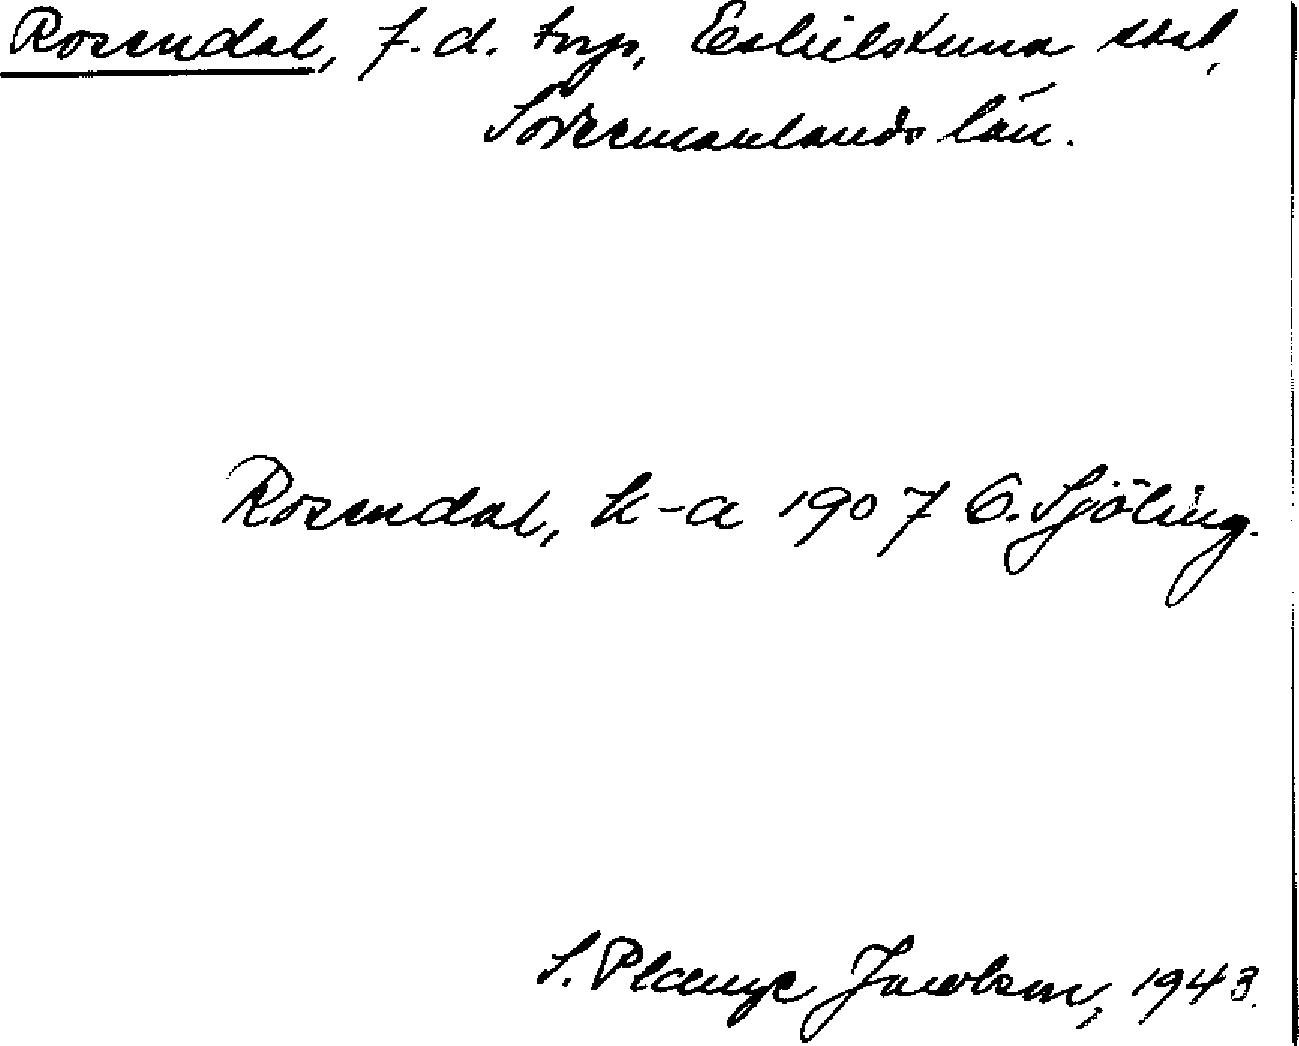 Rosendal, f.d. torp, Eskilstuna stad,
Södermanlands län.
Rosendal, k-a 1907 C. Sjöling.
S. Plænge Jacobson, 1943.